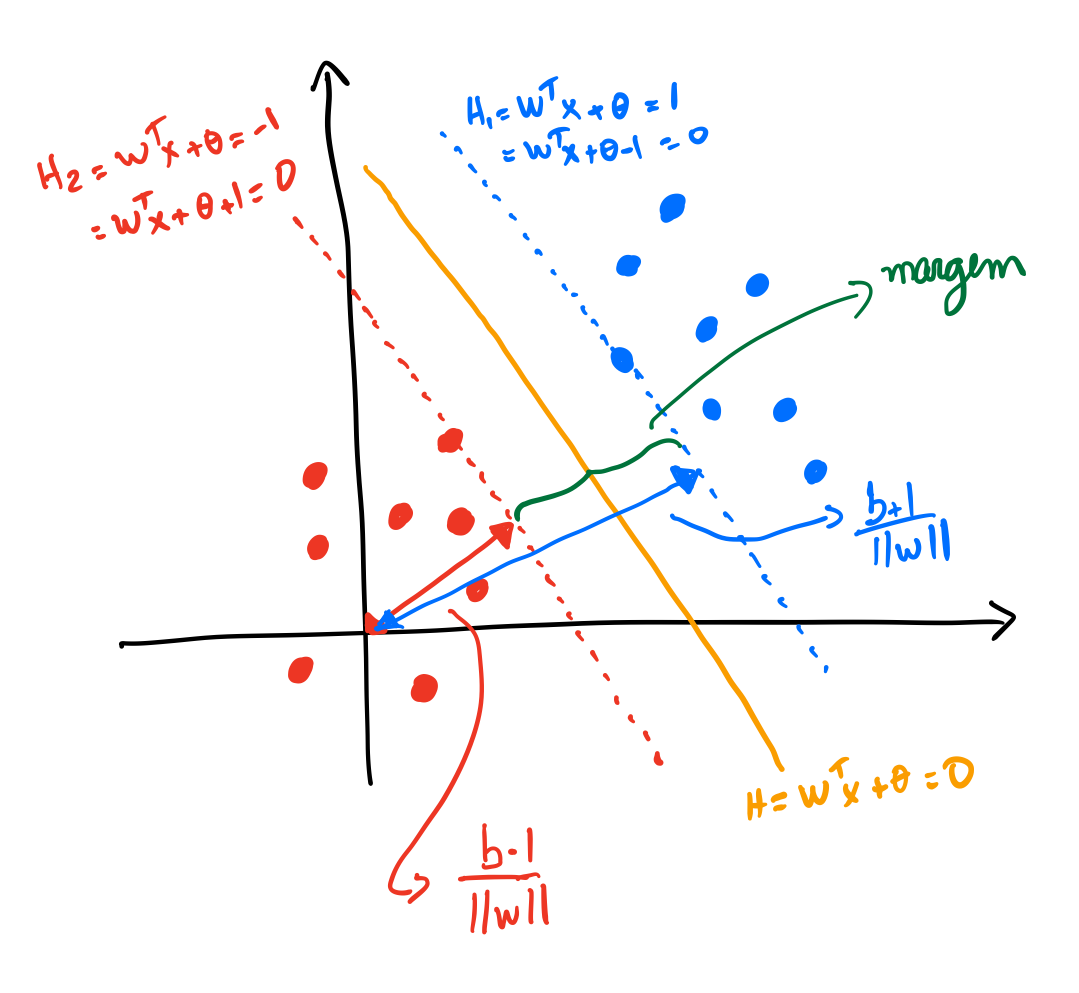 H₁ = wᵀx + θ = 1
= wᵀx + θ - 1 = 0
H₂ = wᵀx + θ = -1
= wᵀx + θ + 1 = 0
margem
b+1
||w||
H = wᵀx + θ = 0
b-1
||w||